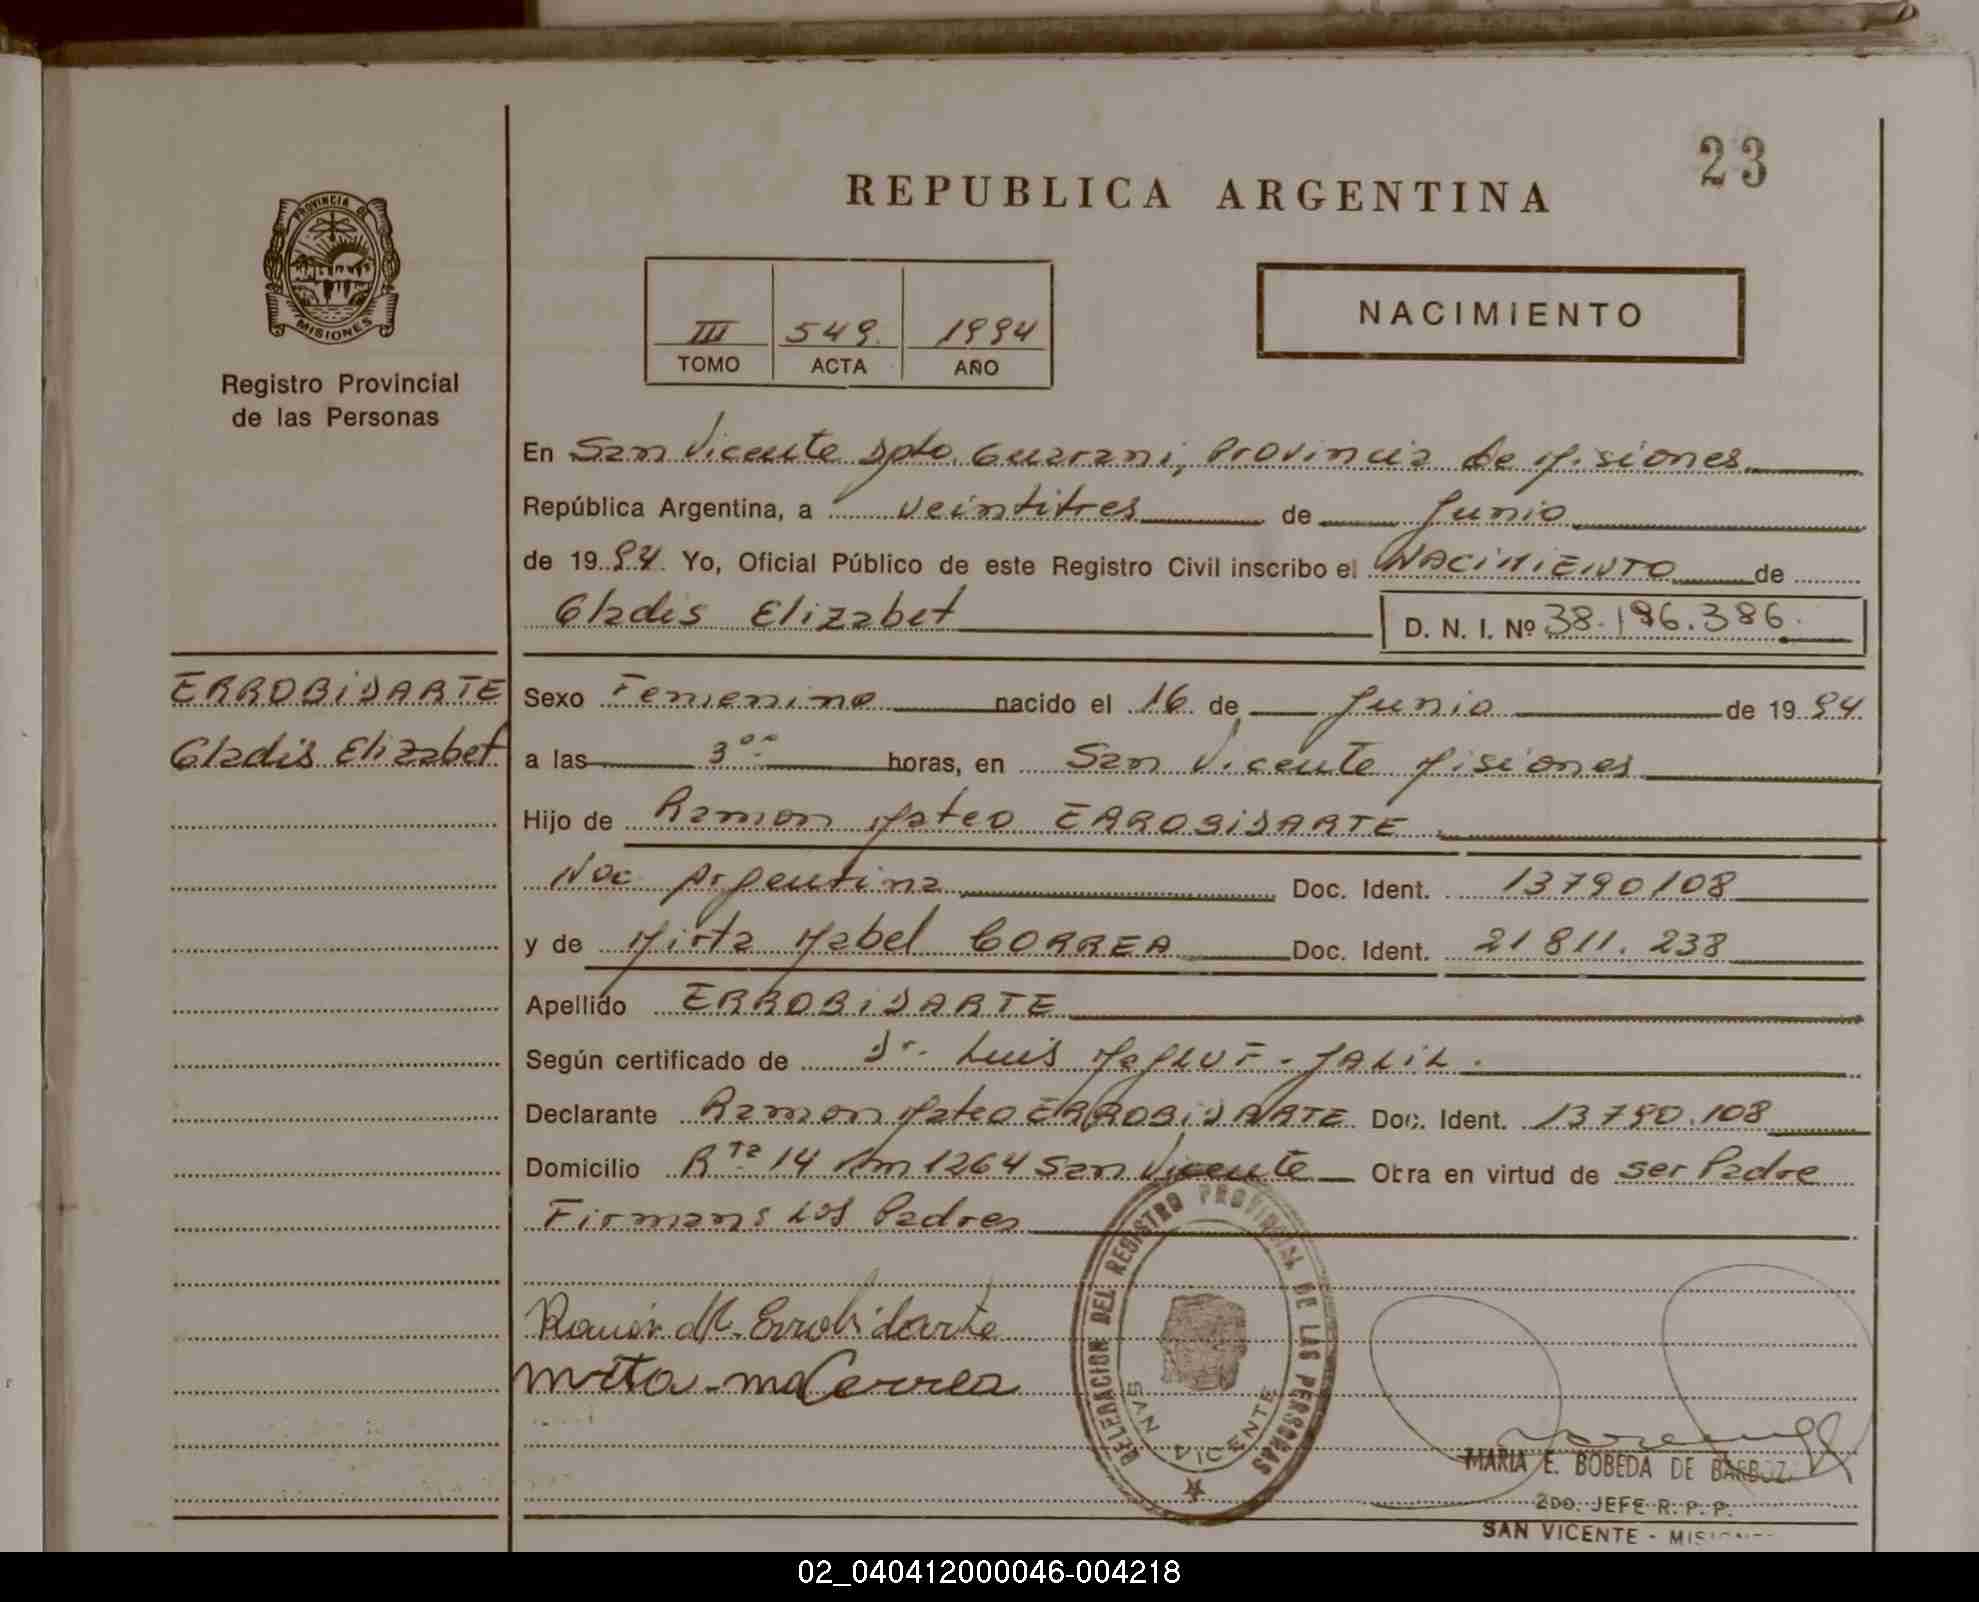 23
REPUBLICA ARGENTINA
PROVINCIA DE
MISIONES
Registro Provincial
de las Personas
III 549. 1994
TOMO ACTA AÑO
NACIMIENTO
En San Vicente Dpto. Guarani, Provincia de Misiones
República Argentina, a veintitres de Junio
de 1994. Yo, Oficial Público de este Registro Civil inscribo el NACIMIENTO de
Gladis Elizabet D. N. I. Nº 38.196.386.
ERROBIDARTE
Gladis Elizabet
Sexo Femenino nacido el 16 de Junio de 1994.
a las 3 oo horas, en San Vicente Misiones
Hijo de Ramon Mateo ERROBIDARTE
Nac Argentina Doc. Ident. 13790108
y de Mirta Mabel CORREA Doc. Ident. 21811.238
Apellido ERROBIDARTE
Según certificado de Dr. Luis MAGLUF-JALIL.
Declarante Ramon Mateo ERROBIDARTE Doc. Ident. 13790.108
Domicilio Rta 14 Km 1264 San Vicente Obra en virtud de ser Padre
Firman: Los Padres
Ramón M. Errobidarte
Mirta-M Correa
DELEGACION DEL REGISTRO PROVINCIAL DE LAS PERSONAS
SAN VICENTE
MARIA E. BOBEDA DE BARBOZA
2DO. JEFE R. P. P.
SAN VICENTE - MISIONES
02_040412000046-004218